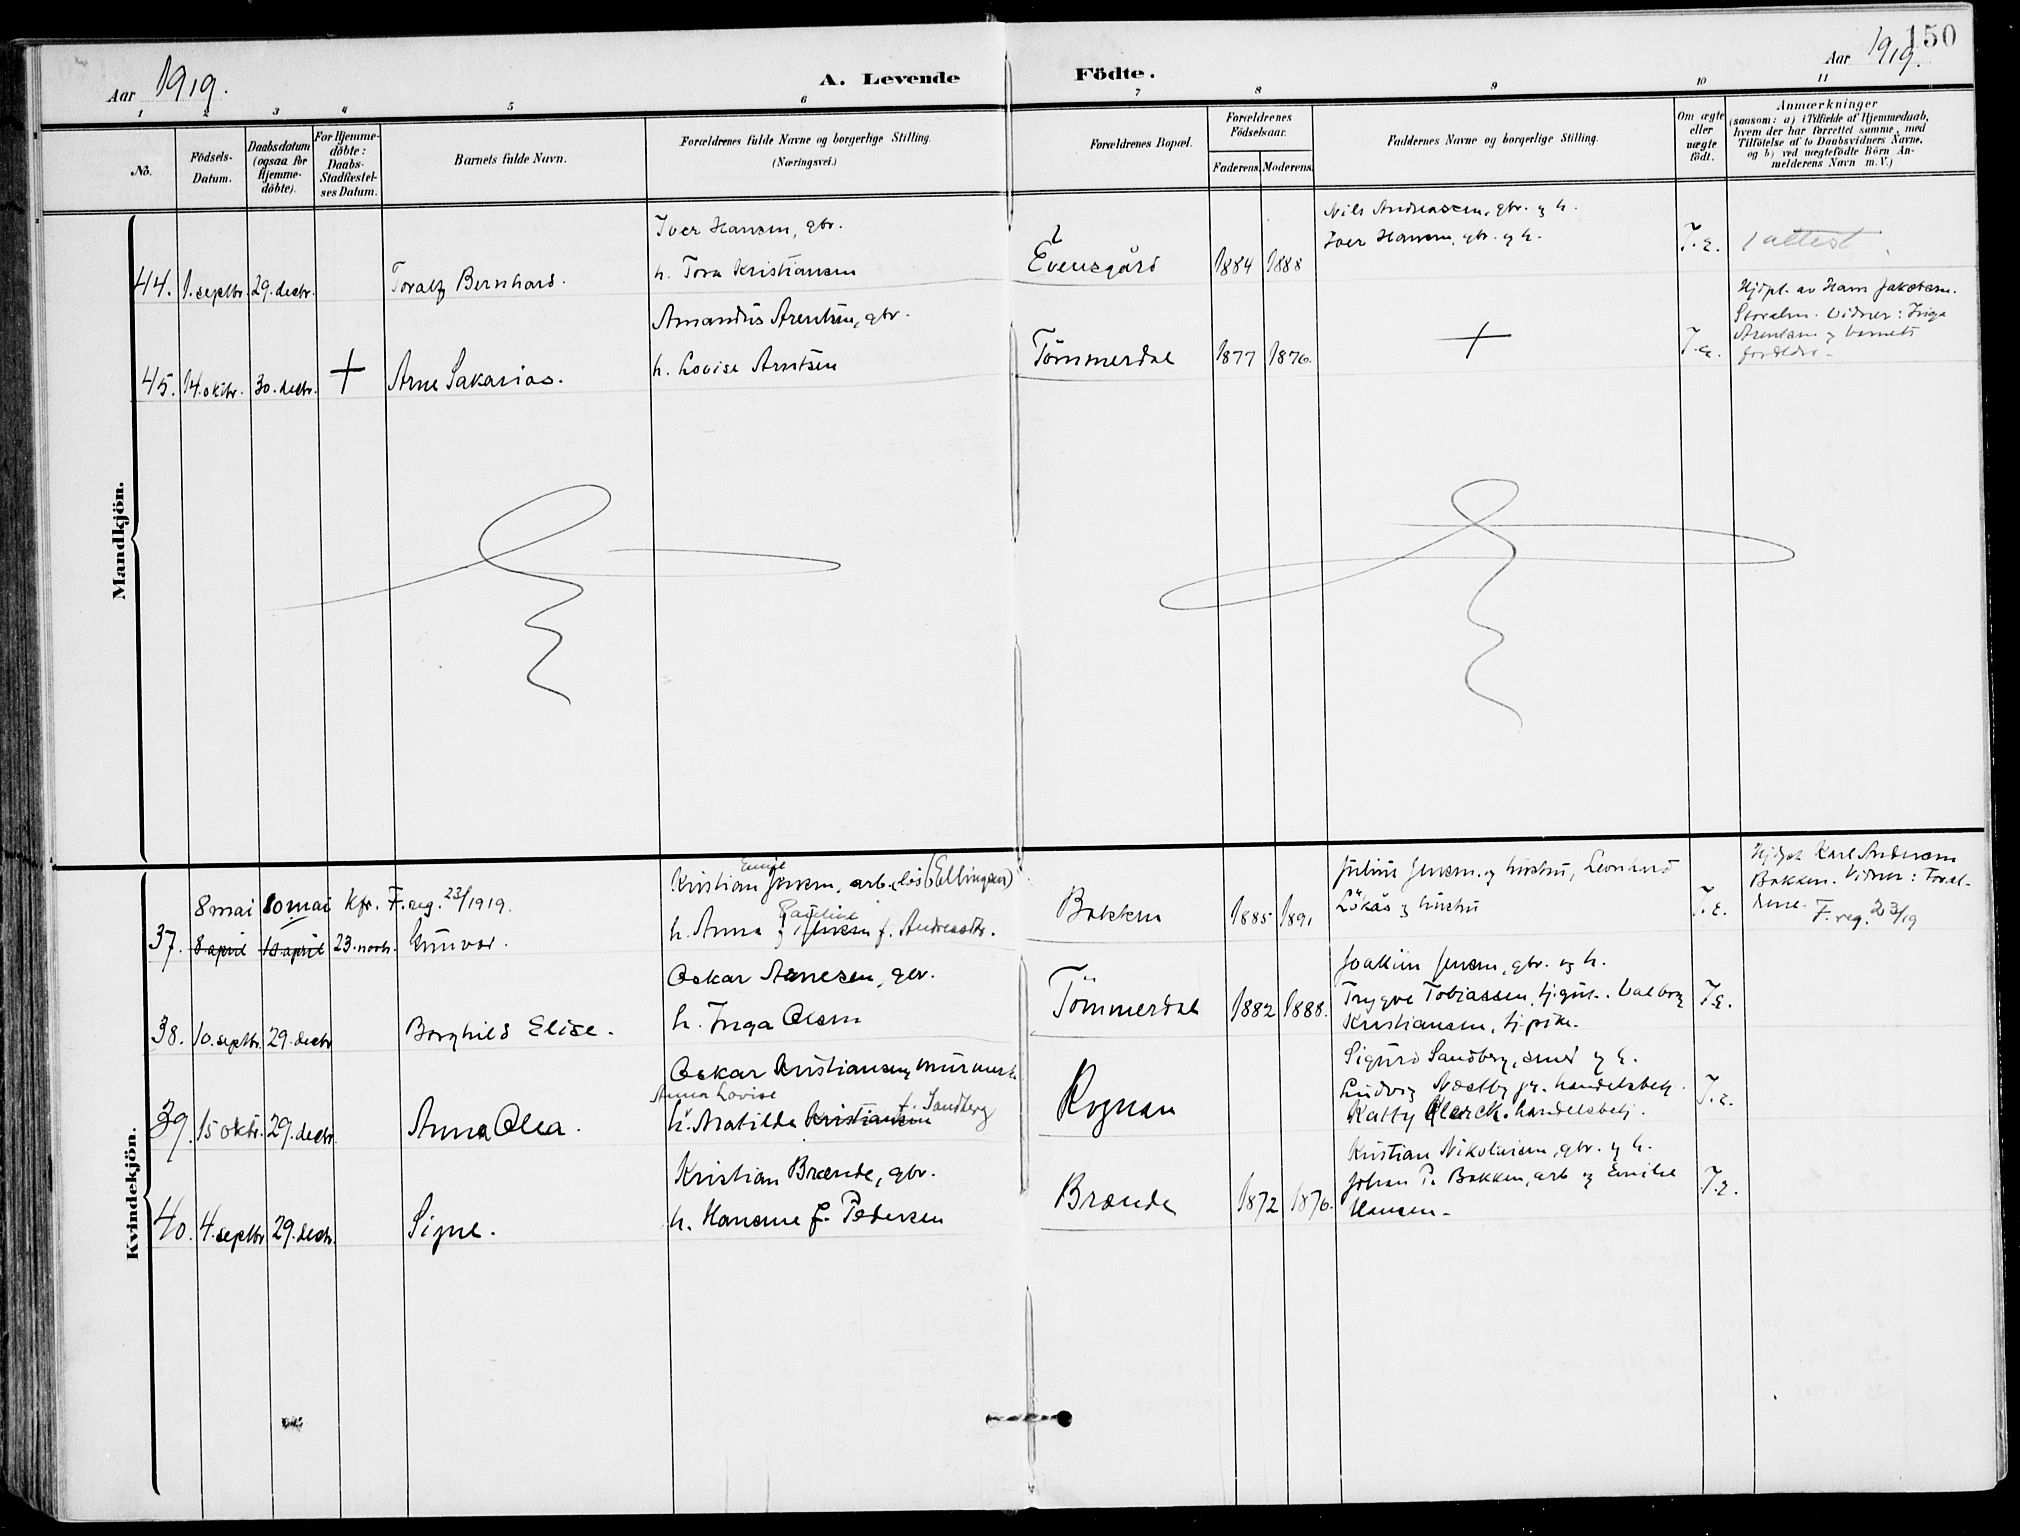 150
Aar 1919.
A. Levende Födte.
Aar 1919.
1 2 3 4 5 6 7 8 9 10 11
No.
Födsels-Datum.
Daabsdatum (ogsaa for Hjemme-döbte).
For Hjemme-döbte: Daabs-Stadfæstel-ses Datum.
Barnets fulde Navn.
Forældrenes fulde Navne og borgerlige Stilling.
(Næringsvei.)
Forældrenes Bopæl.
Forældrenes Födselsaar.
Faderens. Moderens.
Faddernes Navne og borgerlige Stilling.
Om ægte eller uægte födt.
Anmærkninger
(saasom: a) i Tilfælde af Hjemmedaab,
hvem der har forrettet samme, med
Tilföielse af to Daabsvidners Navne,
og b) ved uægtefödte Börn An-
melderens Navn m. V.)
Mandkjön.
Iver Hansen, gbr.
Nils Andreassen, gbr. og h.
Iver Hansen, gbr. og h.
44. 1. septbr. 29. decbr. Toralf Bernhard. h. Tora Kristiansen Evensgård 1884 1888 T. e. 1 attest
Amandus Arentsen, gbr.
Hjdpt. av Hans Jakobsen
Storalm. Vidner: Inga
Arentsen og barnets
forældre
45. 14. oktbr. 30. decbr. + Arne Sakarias. h. Lovise Arntsen Tömmerdal 1877 1876. + T. e.
Kvindekjön.
Kristian Jensen, arb. (Ellingsen)
8 mai 10 mai Kfr. F. reg. 23/1919.
37. 8 april 10 april 23. novb. Gunvor. h. Anna Pauline Jensen f. Andreasdtr.
Bakken 1885 1891
Julius Jensen og hustru, Leonhard
Lökås og hustru
T. e.
Hjdpt. Karl Andersen
Bakken. Vidner: Foræl-
drene. F. reg. 23/19
Oskar Arnesen, gbr.
38. 10. septbr. 29. decbr Borghild Elise. h. Inga Olsen Tömmerdal 1882 1888.
Joakim Jensen, gbr. og h.
Trygve Tobiassen, tj.gut. Valborg
Kristiansen, tj.pike.
T. e.
Oskar Kristiansen, murmest.
Anna Lovise
39. 15 oktbr. 29. decbr. Anna Olea. h. Matilde Kristiansen f. Sandberg
Rognan
Sigurd Sandberg, smed og h.
Ludvig Næstby jr. handelsbetj.
Katty Clerck. handelsbetj.
T. e.
Kristian Brænde, gbr.
40. 4. septbr 29. decbr. Signe. h. Hansine f. Pedersen
Brænde 1872 1876.
Kristian Nikolaisen, gbr. og h.
Johan P. Bakken, arb og Emilie
Hansen
T. e.